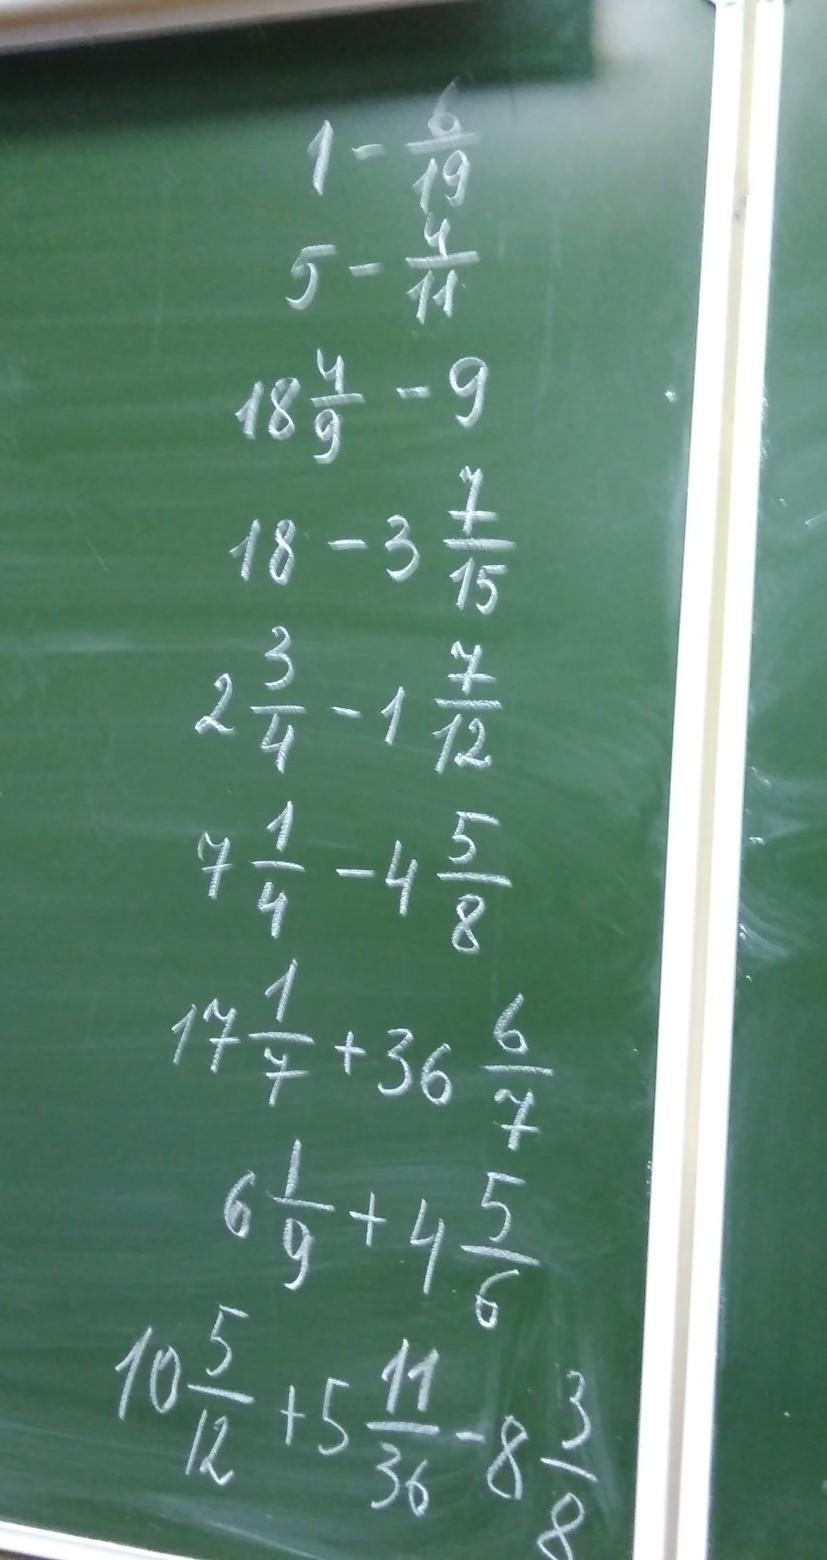 1 - 6/19
5 - 4/11
18 4/9 - 9
18 - 3 7/15
2 3/4 - 1 7/12
7 1/4 - 4 5/8
17 1/7 + 36 6/7
6 1/9 + 4 5/6
10 5/12 + 5 11/36 - 8 3/8